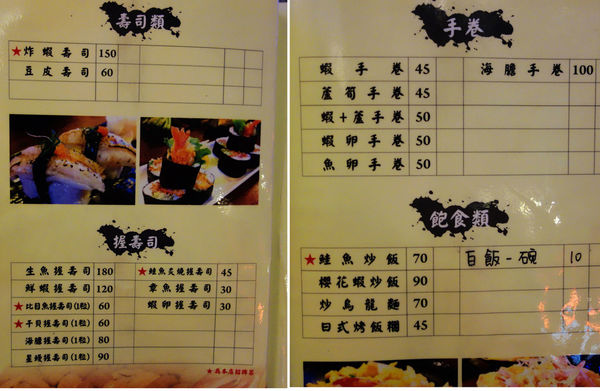 壽司類
★炸蝦壽司 150
豆皮壽司 60
握壽司
生魚握壽司 180
鮮蝦握壽司 120
★比目魚握壽司(1粒) 60
★干貝握壽司(1粒) 60
海膽握壽司(1粒) 80
星鰻握壽司(1粒) 90
★鮭魚炙燒握壽司 45
章魚握壽司 30
蝦卵握壽司 30
★為本店招牌菜
手卷
蝦手卷 45
蘆筍手卷 45
蝦+蘆手卷 50
蝦卵手卷 50
魚卵手卷 50
海膽手卷 100
飽食類
★鮭魚炒飯 70
櫻花蝦炒飯 90
炒烏龍麵 70
日式烤飯糰 45
白飯-碗 10